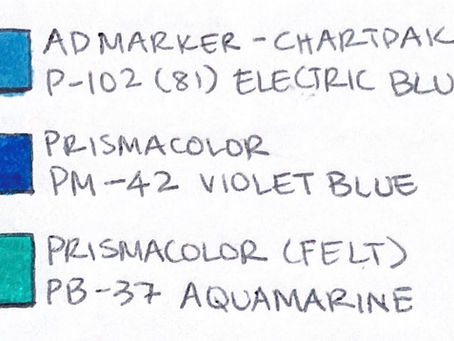 AD MARKER - CHARTPAK
P-102 (81) ELECTRIC BLU
PRISMACOLOR
PM-42 VIOLET BLUE
PRISMACOLOR (FELT)
PB-37 AQUAMARINE